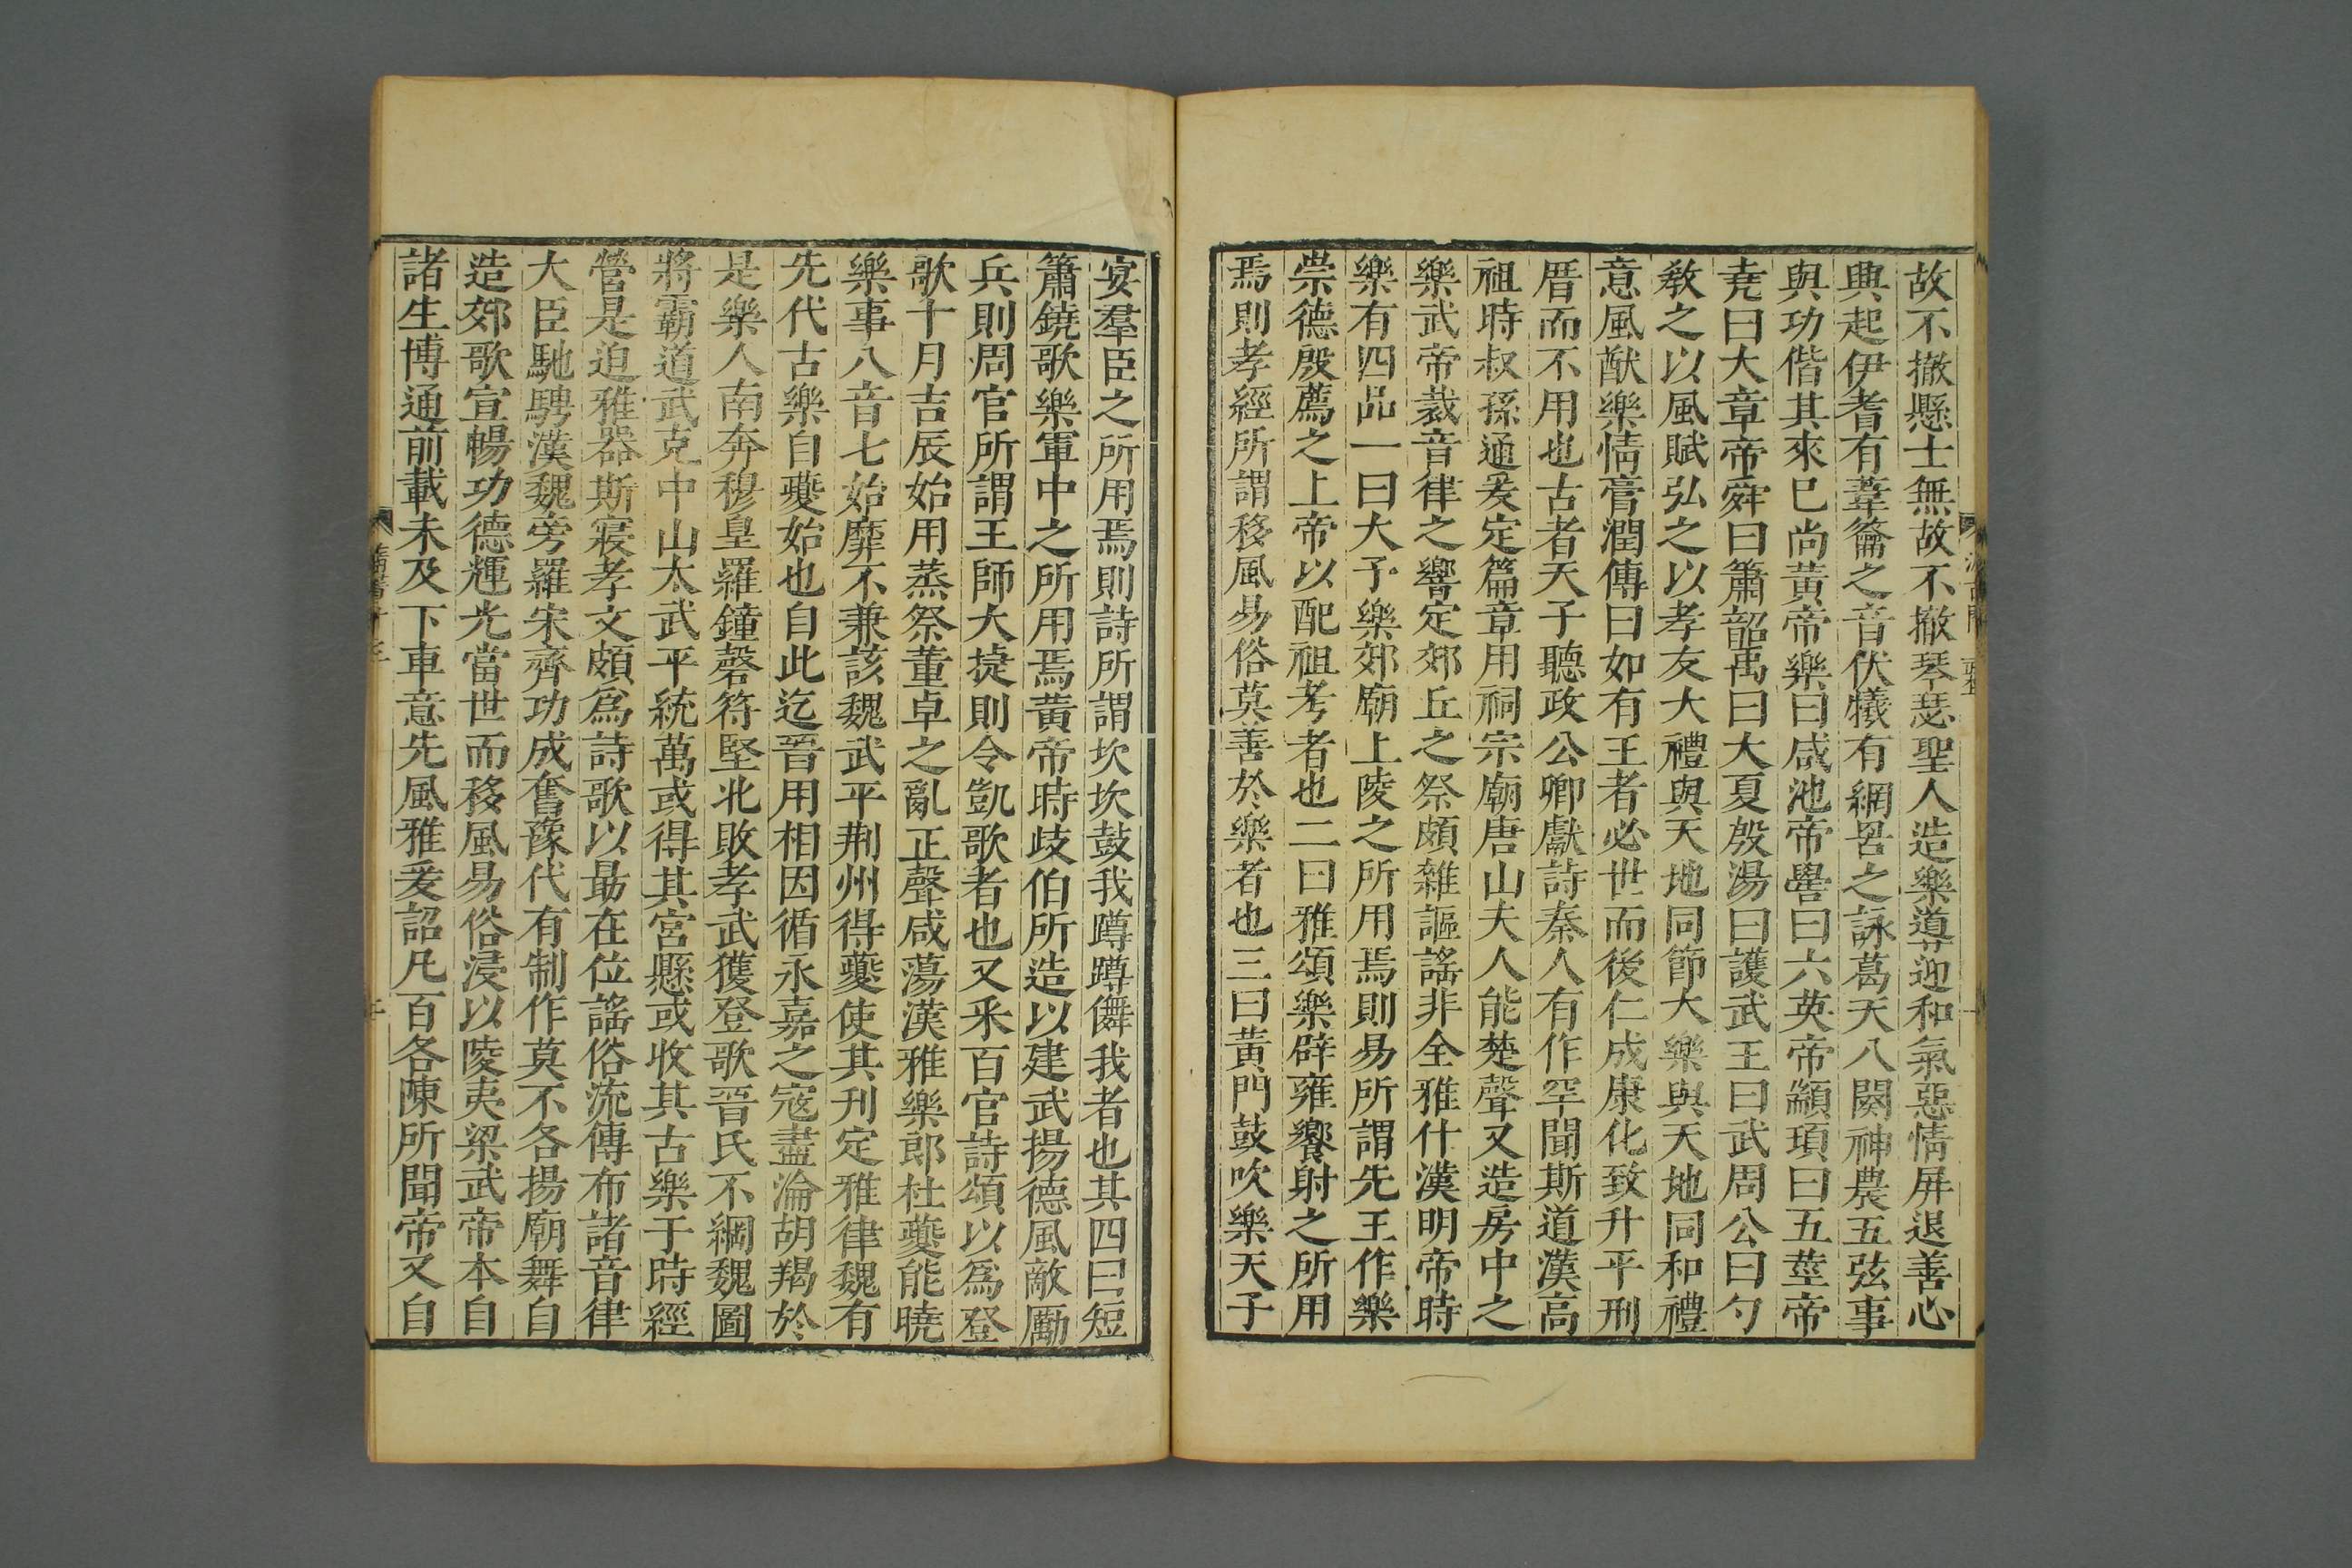 故不撤懸士無故不撤琴瑟聖人造樂導迎和氣惡情屏退善心
興起伊耆有葦籥之音伏犧有網罟之詠葛天八闋神農五弦事
與功偕其來已尚黃帝樂曰咸池帝嚳曰六英帝顓頊曰五莖帝
堯曰大章帝舜曰簫韶禹曰大夏殷湯曰護武王曰武周公曰勺
敎之以風賦弘之以孝友大禮與天地同節大樂與天地同和禮
意風猷樂情膏潤傳曰如有王者必世而後仁成康化致升平刑
厝而不用也古者天子聽政公卿獻詩秦人有作罕聞斯道漢高
祖時叔孫通爰定篇章用祠宗廟唐山夫人能楚聲又造房中之
樂武帝裁音律之響定郊丘之祭頗雜謳謠非全雅什漢明帝時
樂有四品一曰大予樂郊廟上陵之所用焉則易所謂先王作樂
崇德殷薦之上帝以配祖考者也二曰雅頌樂辟雍饗射之所用
焉則孝經所謂移風易俗莫善於樂者也三曰黃門鼓吹樂天子
宴羣臣之所用焉則詩所謂坎坎鼓我蹲蹲儛我者也其四曰短
簫鐃歌樂軍中之所用焉黃帝時歧伯所造以建武揚德風敵勵
兵則周官所謂王師大捷則令凱歌者也又釆百官詩頌以爲登
歌十月吉辰始用蒸祭董卓之亂正聲咸蕩漢雅樂郎杜夔能曉
樂事八音七始靡不兼該魏武平荆州得夔使其刋定雅律魏有
先代古樂自夔始也自此迄晉用相因循永嘉之寇盡淪胡羯於
是樂人南奔穆皇羅鐘磬苻堅北敗孝武獲登歌晉氏不綱魏圖
將霸道武克中山太武平統萬或得其宮懸或收其古樂于時經
營是迫雅器斯寢孝文頗爲詩歌以勗在位謠俗流傳布諸音律
大臣馳騁漢魏旁羅宋齊功成奮豫代有制作莫不各揚廟舞自
造郊歌宣暢功德輝光當世而移風易俗浸以陵夷梁武帝本自
諸生博通前載未及下車意先風雅爰詔凡百各陳所聞帝又自